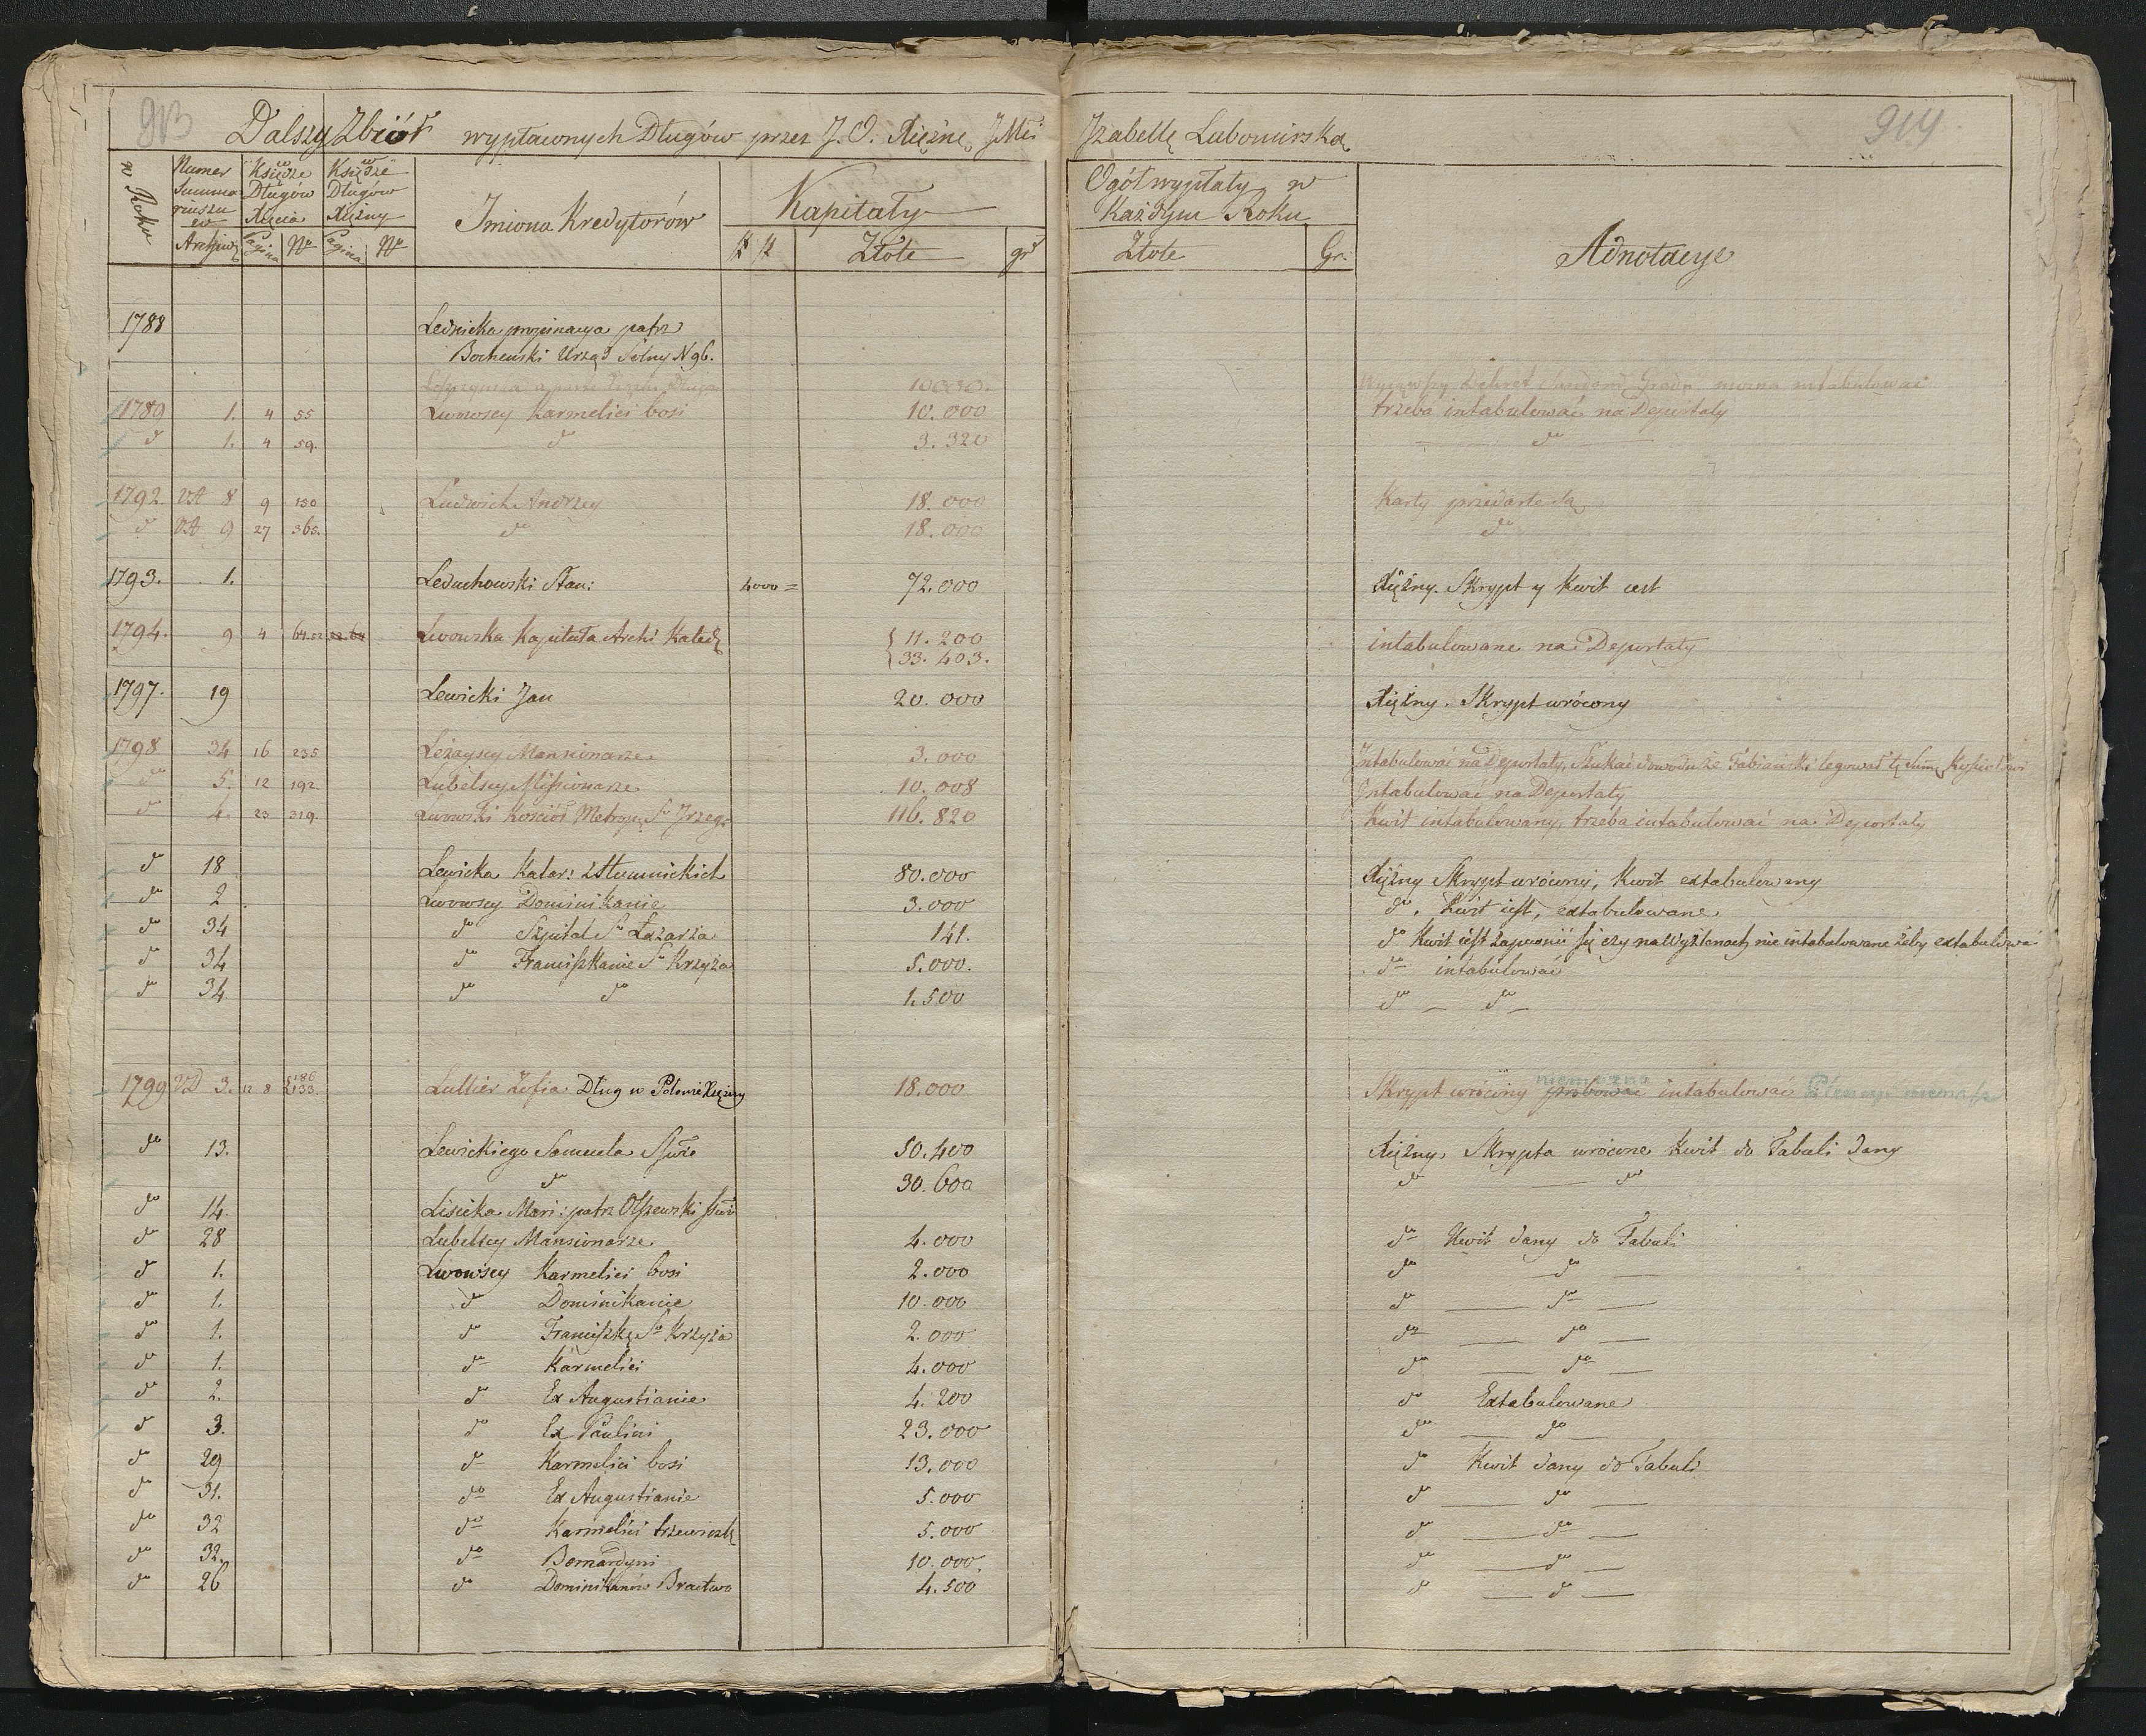 913
914
Dalszy Zbiór wypłaconych Długów przez J. O. Xiężnę JMci Jzabellę Lubomirską
w Roku
Numer Summariuszu w Archiwę
w Księdze Długów Xięcia
w Księdze Długów Xiężny
Pagina Nro Pagina Nro
Jmiona Kredytorów
Kapitały
## Złote gr
Ogół wypłaty w Każdym Roku
Złote Gr.
Adnotacye
1788 Lednicka propinacya patrz
Bocheński Urząd Solny N 96.
10000. Dekret można intabulować
1789 1. 4 55 Lwowscy Karmelici bosi 10.000 trzeba intabulować na Deportaty
do 1. 4 59. do 3.320 do
1792 VA 8 9 130 Ludwich Andrzey 18.000 Karty przedarte są
do VA 9 27 365. do 18.000 do
1793. 1. Leduchowski Stan: 4000 = 72.000 Xiężny. Skrypt y Kwit iest
1794. 9 4 64 Lwowska Kapituła Archi Kated 11.200
33.403. intabulowane na Deportaty
1797. 19 Lewicki Jan 20.000 Xiężny. Skrypt wrócony
1798 34 16 235 Leżayscy Mansionarze 3.000 Jntabulować na Deportaty, Szukać dowodu że Fabiański legował tę Sum Kościołowi
do 5. 12 192 Lubelscy Missionarze 10.008 Jntabulować na Deportaty
do 4. 23 319. Lwowski Kościół Metrop. So Jrzego 116.820 Kwit intabulowany, trzeba intabulować na Deportaty
do 18 Lewicka Katar: z Humnickich 80.000 Xiężny Skrypt wrócony, Kwit extabulowany
do 2 Lwowscy Dominikanie 3.000 do. Kwit iest, extabulowane
do 34 do Szpital So Łazarza 141. do Kwit iest zapewnić się czy na Wyżlanach nie intabulowane żeby extabulować
do 34 do Franciszkanie So Krzyża 5.000. do intabulować
do 34 do do 1.500 do do
1799 VD 3. 12 8 186
133. Lullier Zofia Dług w Połowie Xiężny 18.000 Skrypt wrócony probować niemożna intabulować
do 13. Lewickiego Samuela Ssorów 50.400 Xiężny, Skrypta wrócone Kwit do Tabuli dany
do 30.600 do do
do 14. Lisicka Mari: patrz Olszewski
do 28 Lubelscy Mansionarze 4.000 do Kwit dany do Tabuli
do 1. Lwowscy Karmelici bosi 2.000 do do
do 1. do Dominikanie 10.000 do do
do 1. do Franciszk. So Krzyża 2.000 do do
do 1. do Karmelici 4.000 do do
do 2. do Ex Augustianie 4.200 do Extabulowane
do 3. do Ex Paulini 23.000 do do
do 29 do Karmelici bosi 13.000 do Kwit dany do Tabuli
do 31. do Ex Augustianie 5.000 do do
do 32 do Karmelici trzewiczk 5.000 do do
do 32. do Bernardyni 10.000 do do
do 26 do Dominikanów Bractwo 4.500 do do